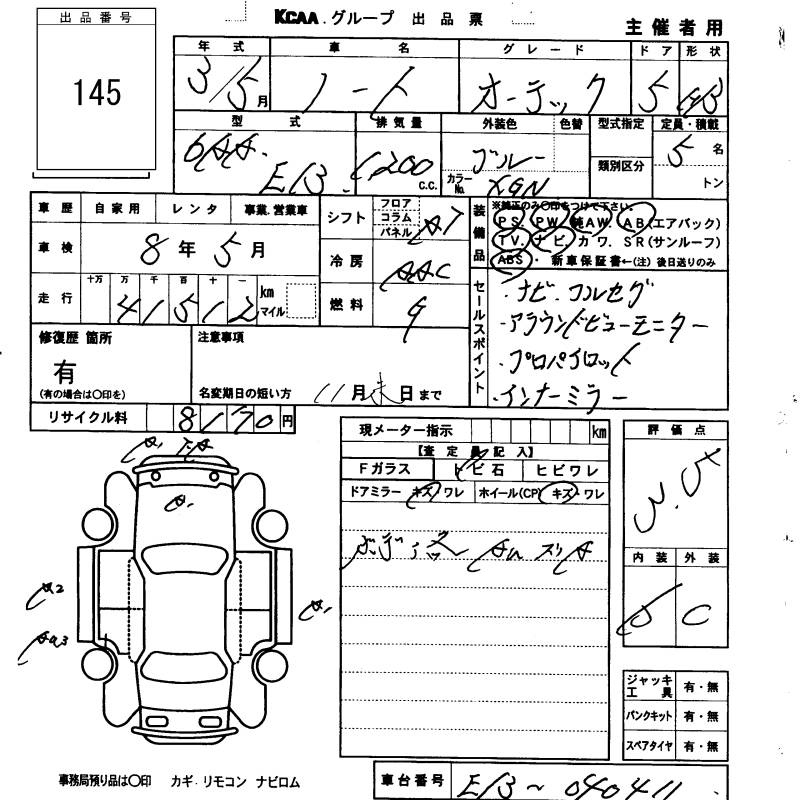 KCAA.グループ 出品票
主催者用
出品番号
145
年式 車名 グレード ドア 形状
3/5月 ノート オーテック 5 HB
型式 排気量 外装色 色替 型式指定 定員・積載
6AA- E13 1,200 c.c. ブルー 類別区分 5名
カラーNo. XGN トン
車歴 自家用 レンタ 事業.営業車
シフト フロア コラム パネル AT
装備品
※純正のみ○印をつけて下さい。
PS. PW. 純AW. AB(エアバック)
TV. ナビ カワ. SR(サンルーフ)
ABS・ 新車保証書←(注)後日送りのみ
車検 8年5月
冷房 AAC
走行 十万 万 千 百 十 一
41512 km マイル
燃料 G
セールスポイント
・ナビ・フルセグ
・アラウンドビューモニター
・プロパイロット
・インナーミラー
修復歴 箇所
有
(有の場合は○印を)
注意事項
名変期日の短い方 11月末日まで
リサイクル料 8170円
現メーター指示 km
【査定員記入】
Fガラス トビ石 ヒビワレ
ドアミラー キズ ワレ ホイール(CP) キズ・ワレ
評価点
3.5
内装 外装
C
A2
A1
ジャッキ 工具 有・無
パンクキット 有・無
スペアタイヤ 有・無
事務局預り品は○印 カギ.リモコン ナビロム
車台番号 E13~040411